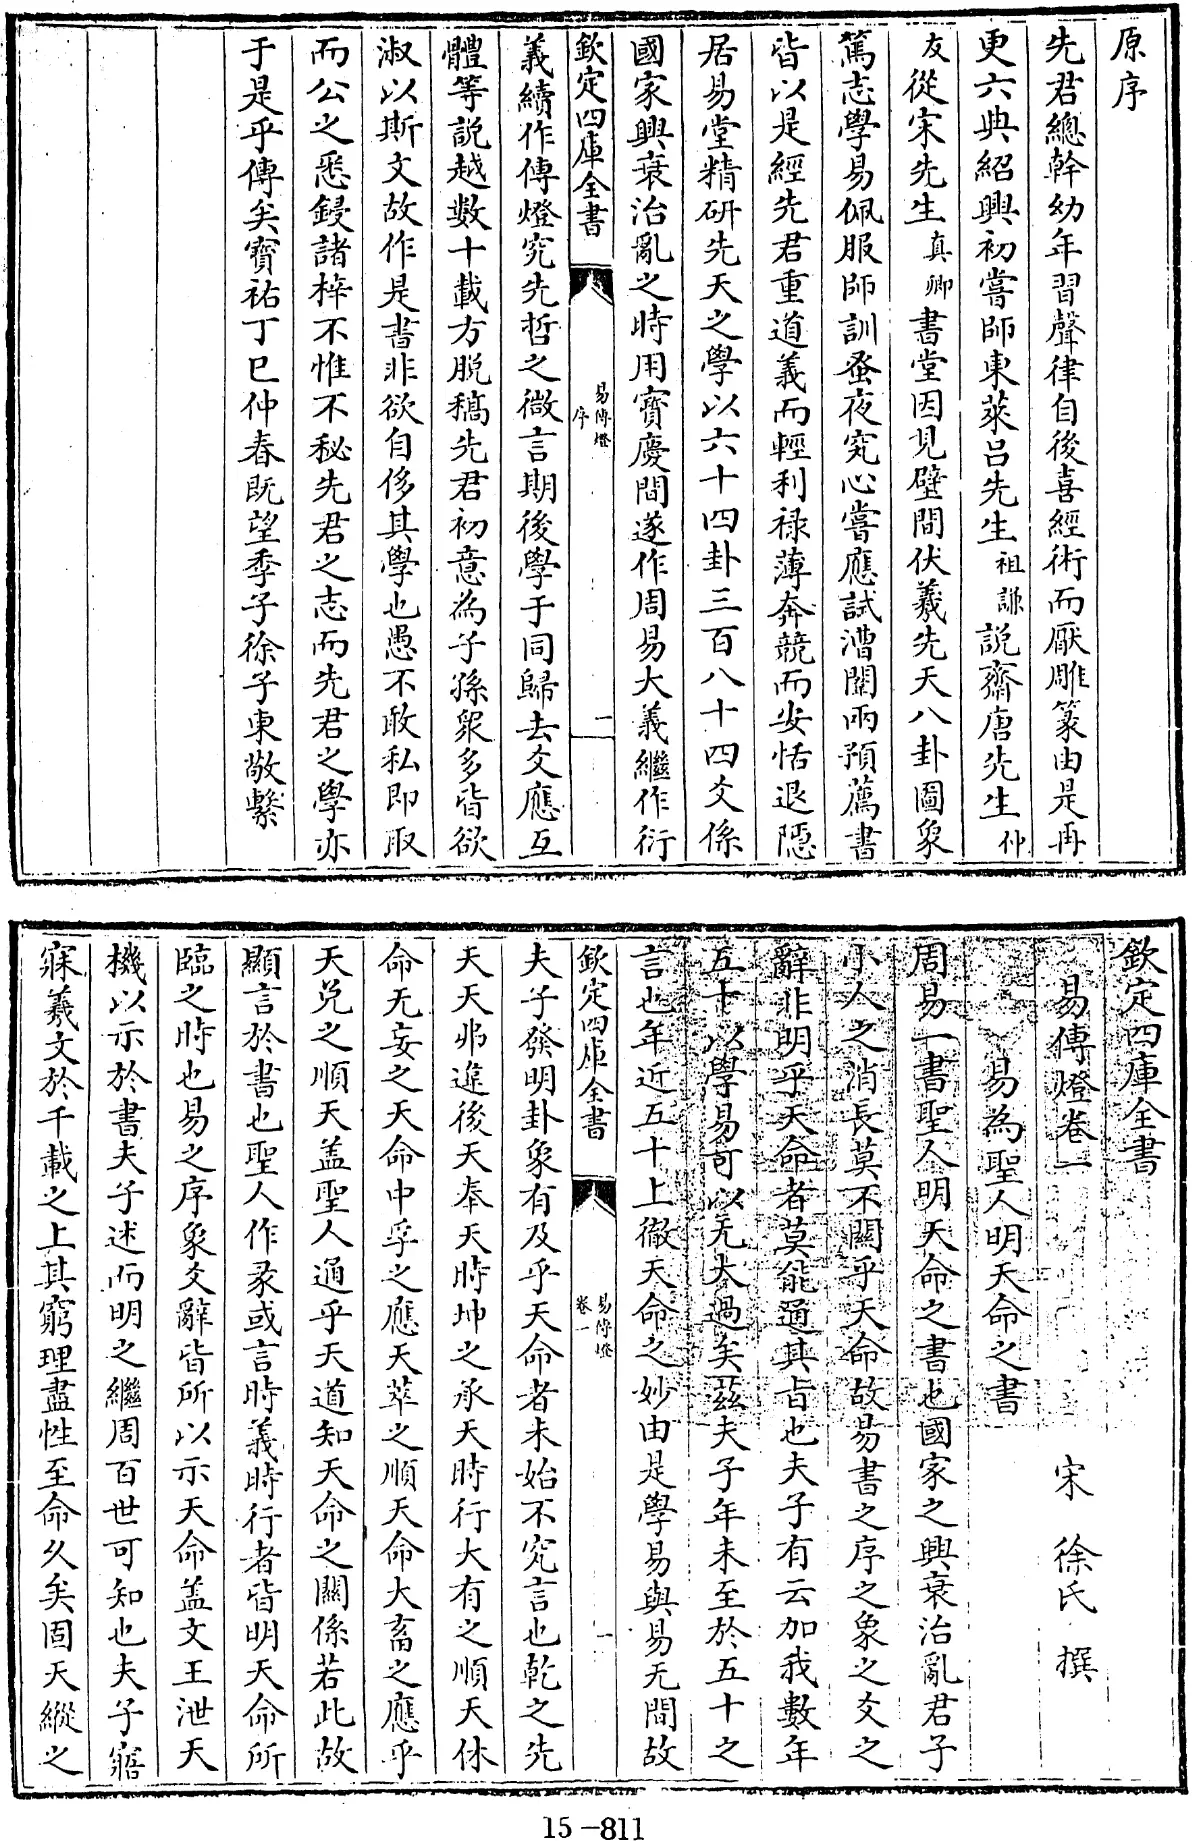 原序
先君總幹幼年習聲律自後喜經術而厭雕篆由是再
更六典紹興初嘗師東萊呂先生祖謙說齋唐先生仲
友從宋先生真卿書堂因見壁間伏羲先天八卦圖象
篤志學易佩服師訓蚤夜究心嘗應試漕闈兩預薦書
皆以是經先君重道義而輕利祿薄奔競而安恬退隱
居易堂精研先天之學以六十四卦三百八十四爻係
國家興衰治亂之時用寶慶間遂作周易大義繼作衍
欽定四庫全書
易傳燈
序
一
義續作傳燈究先哲之微言期後學于同歸去爻應互
體等說越數十載方脫稿先君初意為子孫眾多皆欲
淑以斯文故作是書非欲自侈其學也愚不敢私即取
而公之悉鋟諸梓不惟不秘先君之志而先君之學亦
于是乎傳矣寶祐丁巳仲春既望季子徐子東敬繫
欽定四庫全書
易傳燈卷一
宋 徐氏 撰
易為聖人明天命之書
周易一書聖人明天命之書也國家之興衰治亂君子
小人之消長莫不關乎天命故易書之序之象之爻之
辭非明乎天命者莫能通其旨也夫子有云加我數年
五十以學易可以无大過矣茲夫子年未至於五十之
言也年近五十上徹天命之妙由是學易與易无間故
欽定四庫全書
易傳燈
卷一
一
夫子發明卦象有及乎天命者未始不究言也乾之先
天天弗違後天奉天時坤之承天時行大有之順天休
命无妄之天命中孚之應天萃之順天命大畜之應乎
天兌之順天蓋聖人通乎天道知天命之關係若此故
顯言於書也聖人作彖或言時義時行者皆明天命所
臨之時也易之序象爻辭皆所以示天命蓋文王泄天
機以示於書夫子述而明之繼周百世可知也夫子寤
寐羲文於千載之上其窮理盡性至命久矣固天縱之
15-811